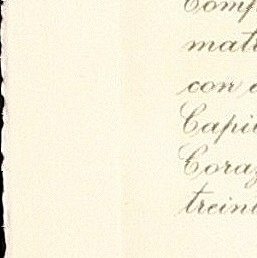 Comp
matr
con
Capi
Coraz
treint